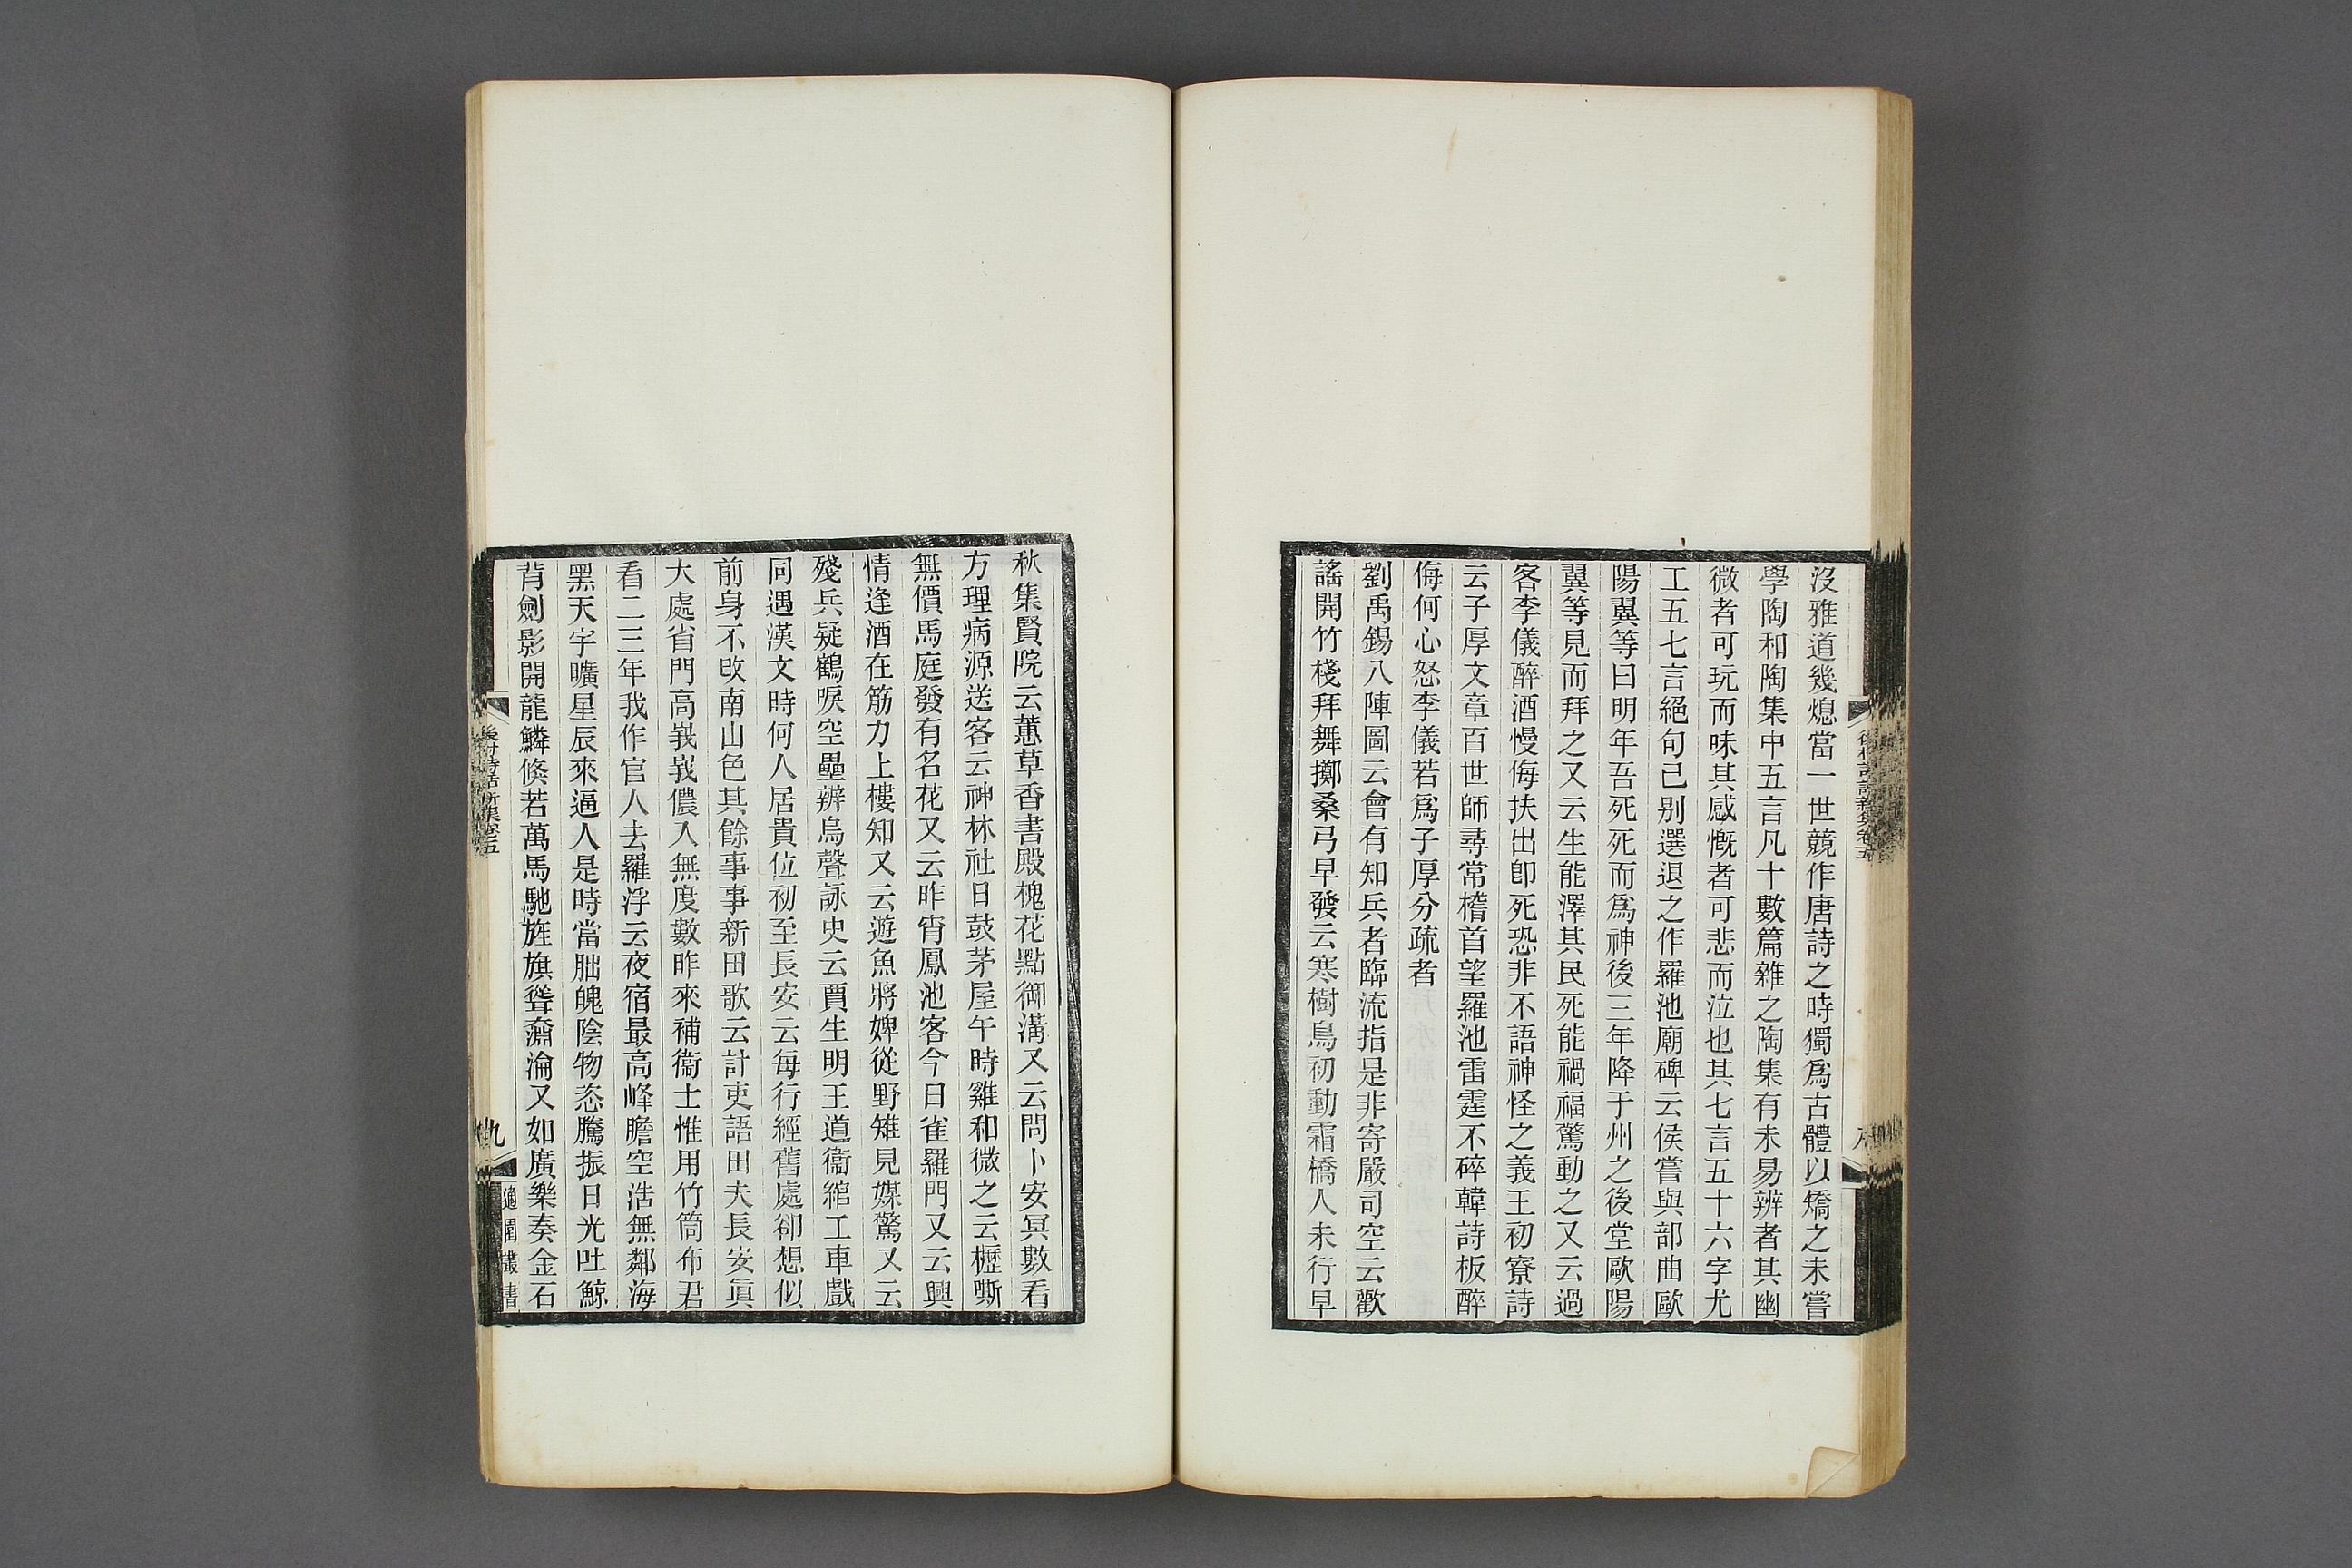 沒雅道幾熄當一世競作唐詩之時獨爲古體以矯之未嘗
學陶和陶集中五言凡十數篇雜之陶集有未易辨者其幽
微者可玩而味其感慨者可悲而泣也其七言五十六字尤
工五七言絕句己别選退之作羅池廟碑云侯嘗與部曲歐
陽翼等曰明年吾死死而爲神後三年降于州之後堂歐陽
翼等見而拜之又云生能澤其民死能禍福驚動之又云過
客李儀醉酒慢侮扶出卽死恐非不語神怪之義王初寮詩
云子厚文章百世師尋常稽首望羅池雷霆不碎韓詩板醉
侮何心怒李儀若爲子厚分疏者
劉禹錫八陣圖云會有知兵者臨流指是非寄嚴司空云歡
謠開竹棧拜舞擲桑弓早發云寒樹鳥初動霜橋人未行早
秋集賢院云蕙草香書殿槐花點御溝又云問卜安冥數看
方理病源送客云神林社日鼓茅屋午時雞和微之云櫪嘶
無價馬庭發有名花又云昨宵鳳池客今日雀羅門又云興
情逢酒在筋力上樓知又云遊魚將婢從野雉見媒驚又云
殘兵疑鶴唳空壘辨烏聲詠史云賈生明王道衞綰工車戲
同遇漢文時何人居貴位初至長安云每行經舊處卻想似
前身不改南山色其餘事事新田歌云計吏語田夫長安眞
大處省門高峩峩儂入無度數昨來補衞士惟用竹筒布君
看二三年我作官人去羅浮云夜宿最高峰瞻空浩無鄰海
黑天宇曠星辰來逼人是時當朏魄陰物恣騰振日光吐鯨
背劍影開龍鱗倏若萬馬馳旌旗聳奫淪又如廣樂奏金石
後村詩話新集卷五
九
適園叢書